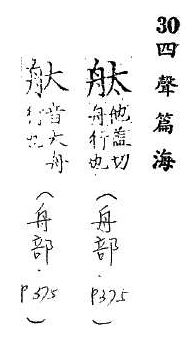 30 四聲篇海
舦 他蓋切
舟行也
（舟部．P375）
音大舟
行也
（舟部．P375）